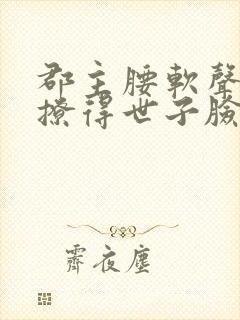 郡主腰軟聲
撩得世子臉
霽夜塵